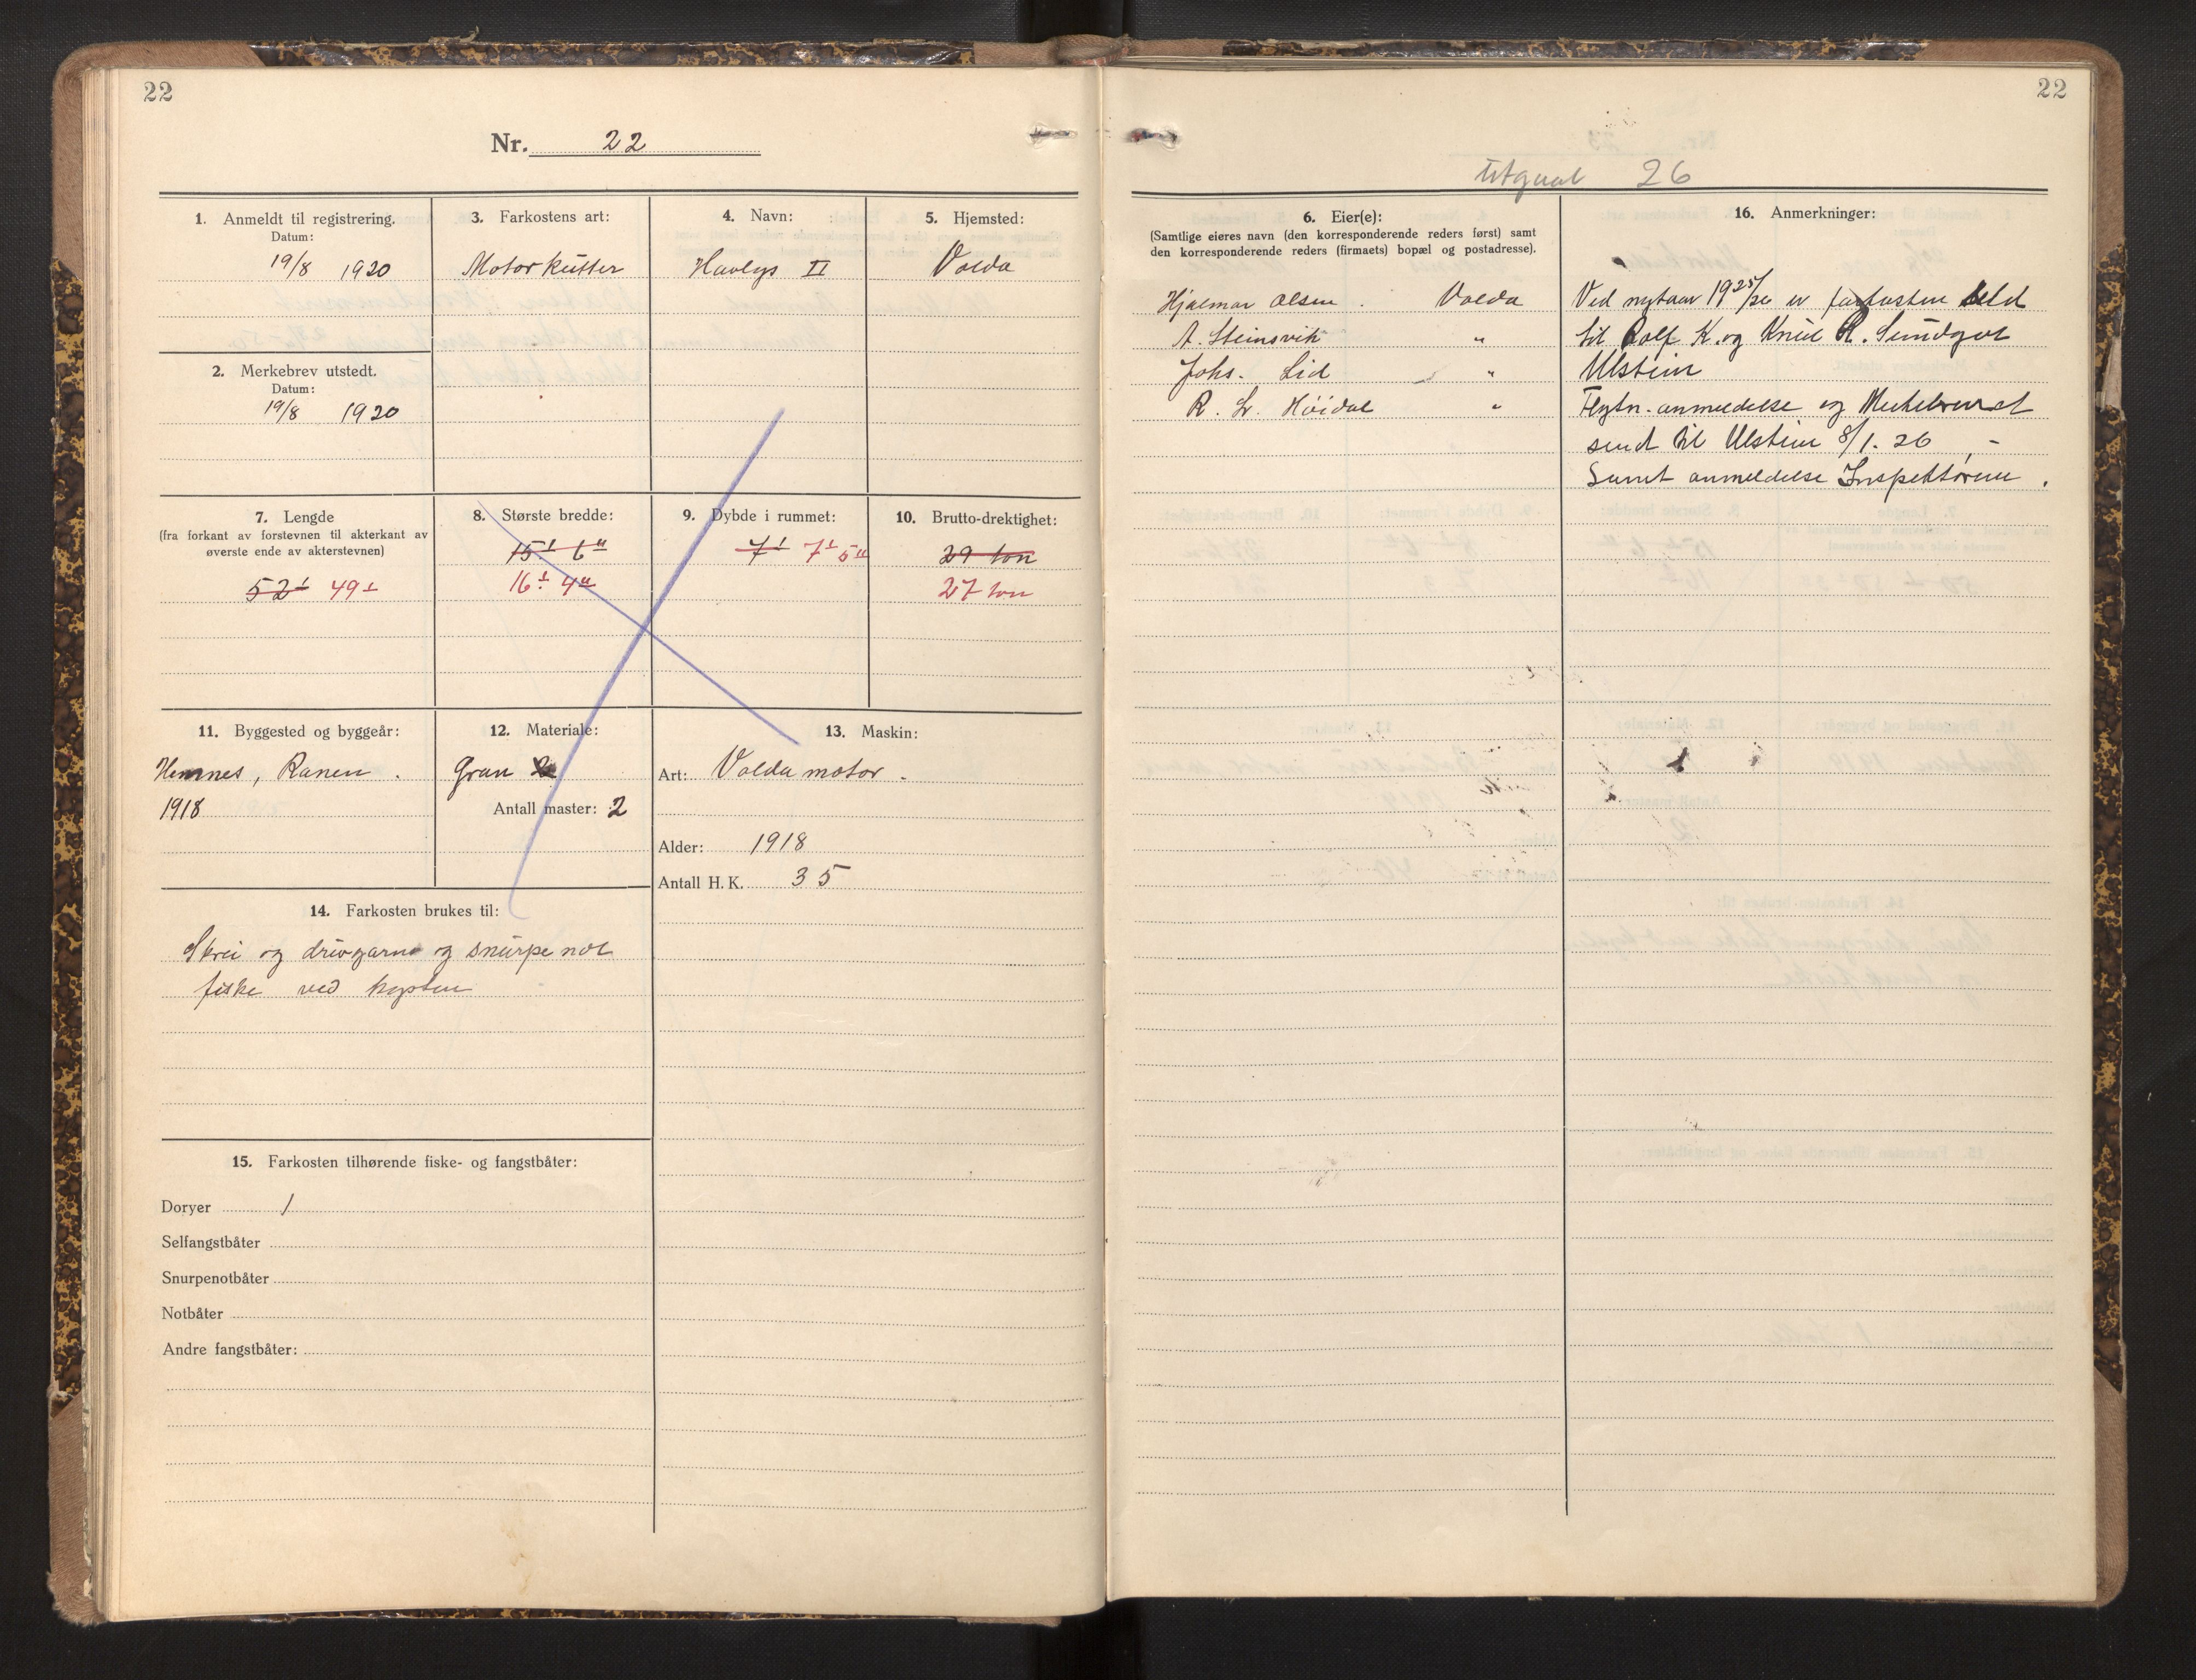 22
Nr. 22
1. Anmeldt til registrering.
Datum:
19/8 1920
2. Merkebrev utstedt.
Datum:
19/8 1920
3. Farkostens art:
Motorkutter
4. Navn:
Havlys II
5. Hjemsted:
Volda
7. Lengde
(fra forkant av forstevnen til akterkant av
øverste ende av akterstevnen)
52' 49'
8. Største bredde:
15' 6"
16' 4"
9. Dybde i rummet:
7' 7' 5"
10. Brutto-drektighet:
29 ton
27 ton
11. Byggested og byggeår:
Hemnes, Ranen.
1918
12. Materiale:
Gran
Antall master: 2
13. Maskin:
Art: Volda motor.
Alder: 1918
Antall H.K. 35
14. Farkosten brukes til:
Skrei og drivgarns og snurpenot
fiske ved kysten
15. Farkosten tilhørende fiske- og fangstbåter:
Doryer 1
Selfangstbåter
Snurpenotbåter
Notbåter
Andre fangstbåter:
22
Utgaat 26
6. Eier(e):
(Samtlige eieres navn (den korresponderende reders først) samt
den korresponderende reders (firmaets) bopæl og postadresse).
Hjalmar Olsen. Volda
A. Steinsvik "
Johs. Lid "
R. L. Höidal "
16. Anmerkninger:
Ved nytaar 1925/26 er farkosten seld
til Rolf K. og Knut R. Sundgot
Ulstein
Flytn. anmeldelse og Merkebrevet
sendt til Ulstein 8/1. 26 -
Samt anmeldelse Inspektøren.